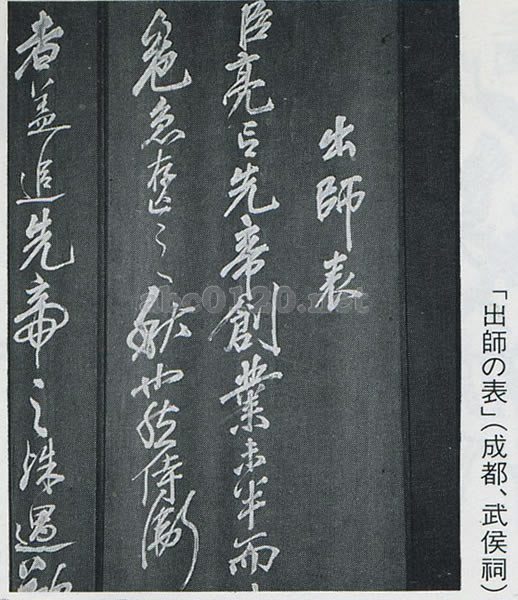 「出師の表」(成都、武侯祠)
出師表
臣亮言先帝創業未半而
危急存亡之秋也然侍衛
者蓋追先帝之殊遇
abc0120.net